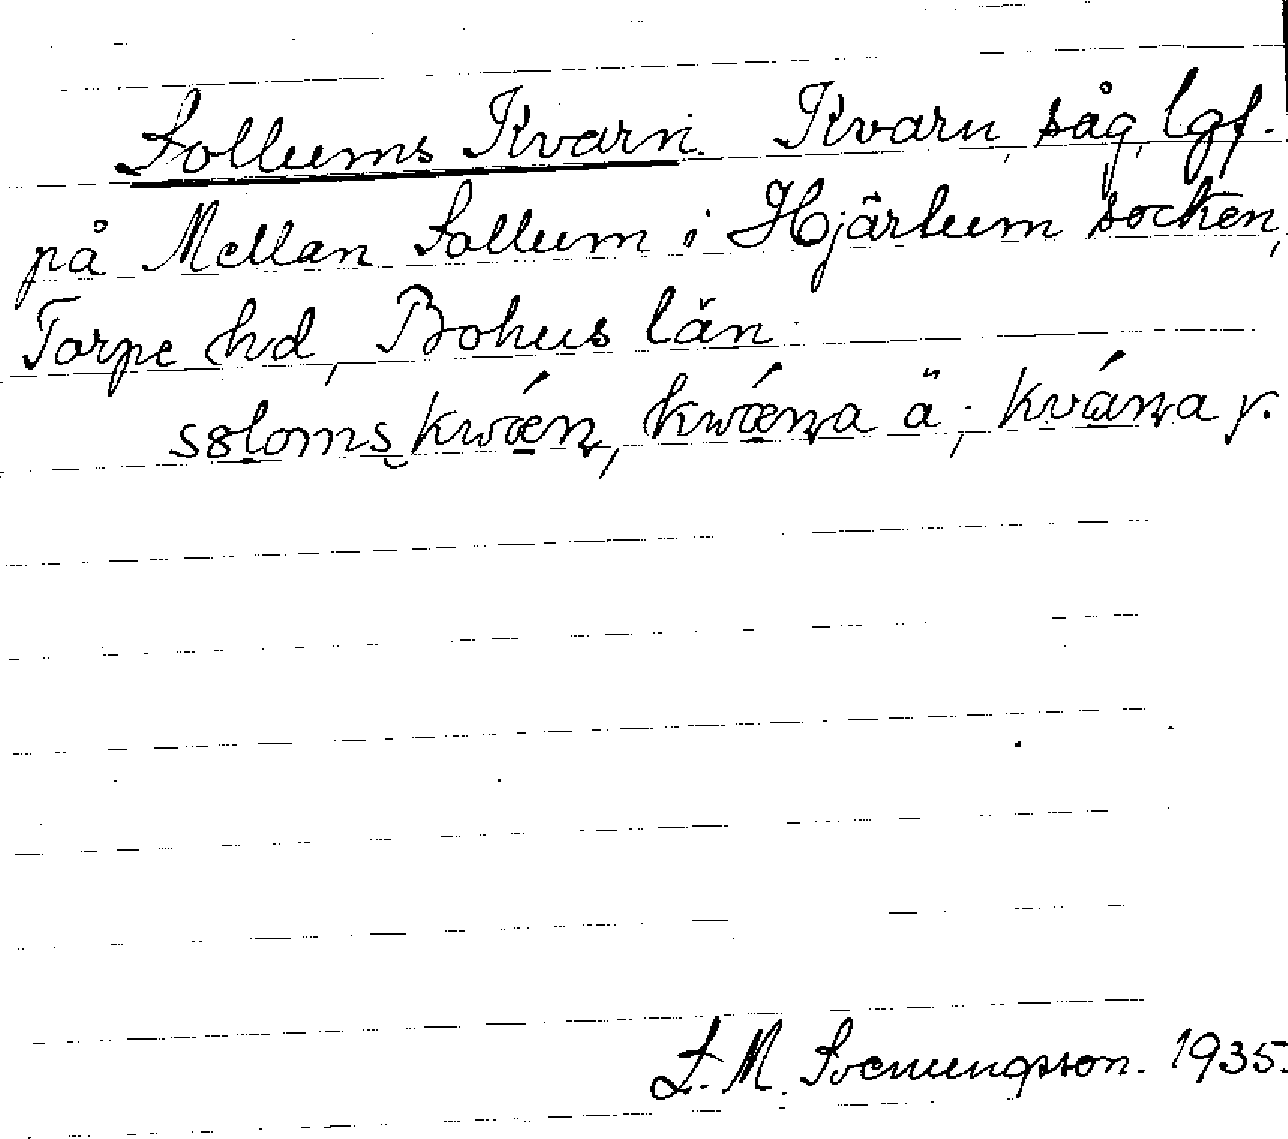 Sollums Kvarn. Kvarn, såg, lgf.
på Mellan Sollum i Hjärtum socken,
Torpe hd, Bohus län.
sɷloms kwǽn, kwǽna ä; kvána y.
L. M. Svenungsson. 1935.